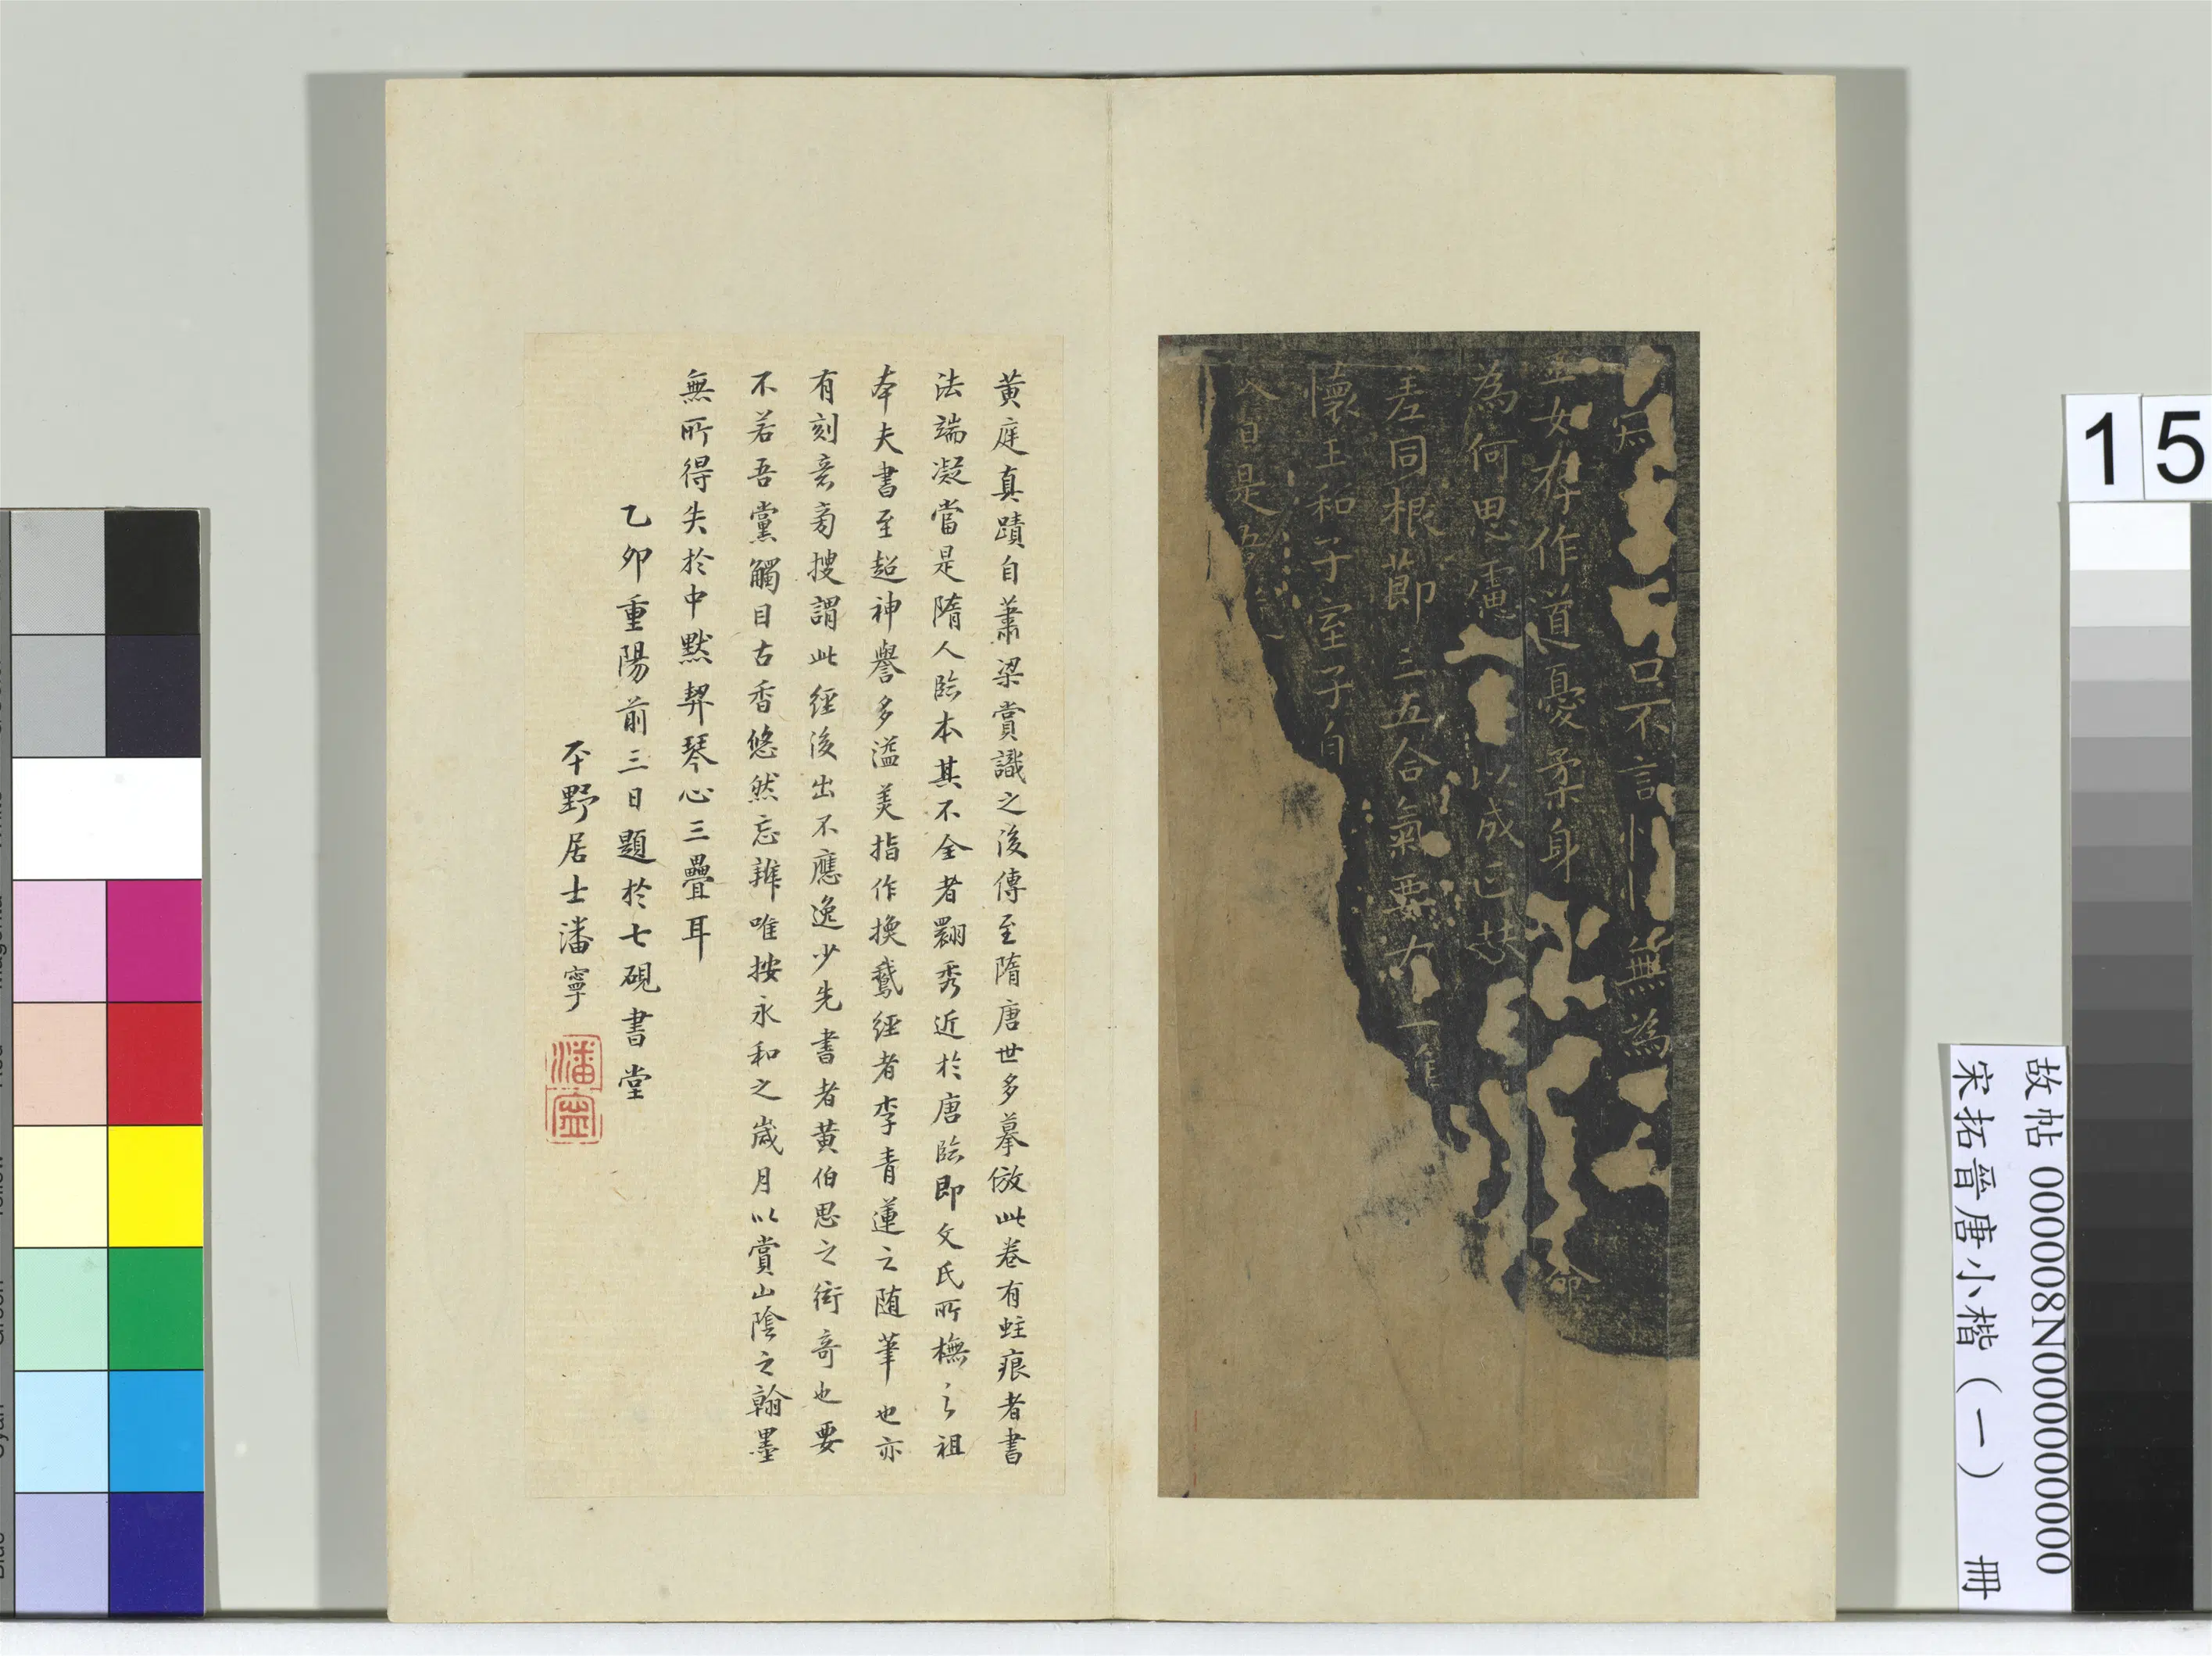 15
故帖 000008N000000000
宋拓晉唐小楷(一) 冊
只不言 無為
玉女存作道憂柔身 命
為何思慮 以成已
差同根節三五合氣要
懷王和子室子自
八日是吾
黃庭真蹟自蕭梁賞識之後傳至隋唐世多摹倣此卷有蛀痕者書
法端凝當是隋人臨本其不全者翾秀近於唐臨即文氏所橅之祖
本夫書至超神譽多溢美指作換鵝經者李青蓮之随筆也亦
有刻意旁搜謂此經後出不應逸少先書者黃伯思之衒奇也要
不若吾黨觸目古香悠然忘辨唯按永和之歲月以賞山陰之翰墨
無所得失於中默契琴心三疊耳
乙卯重陽前三日題於七硯書堂
不野居士潘寧
潘寧